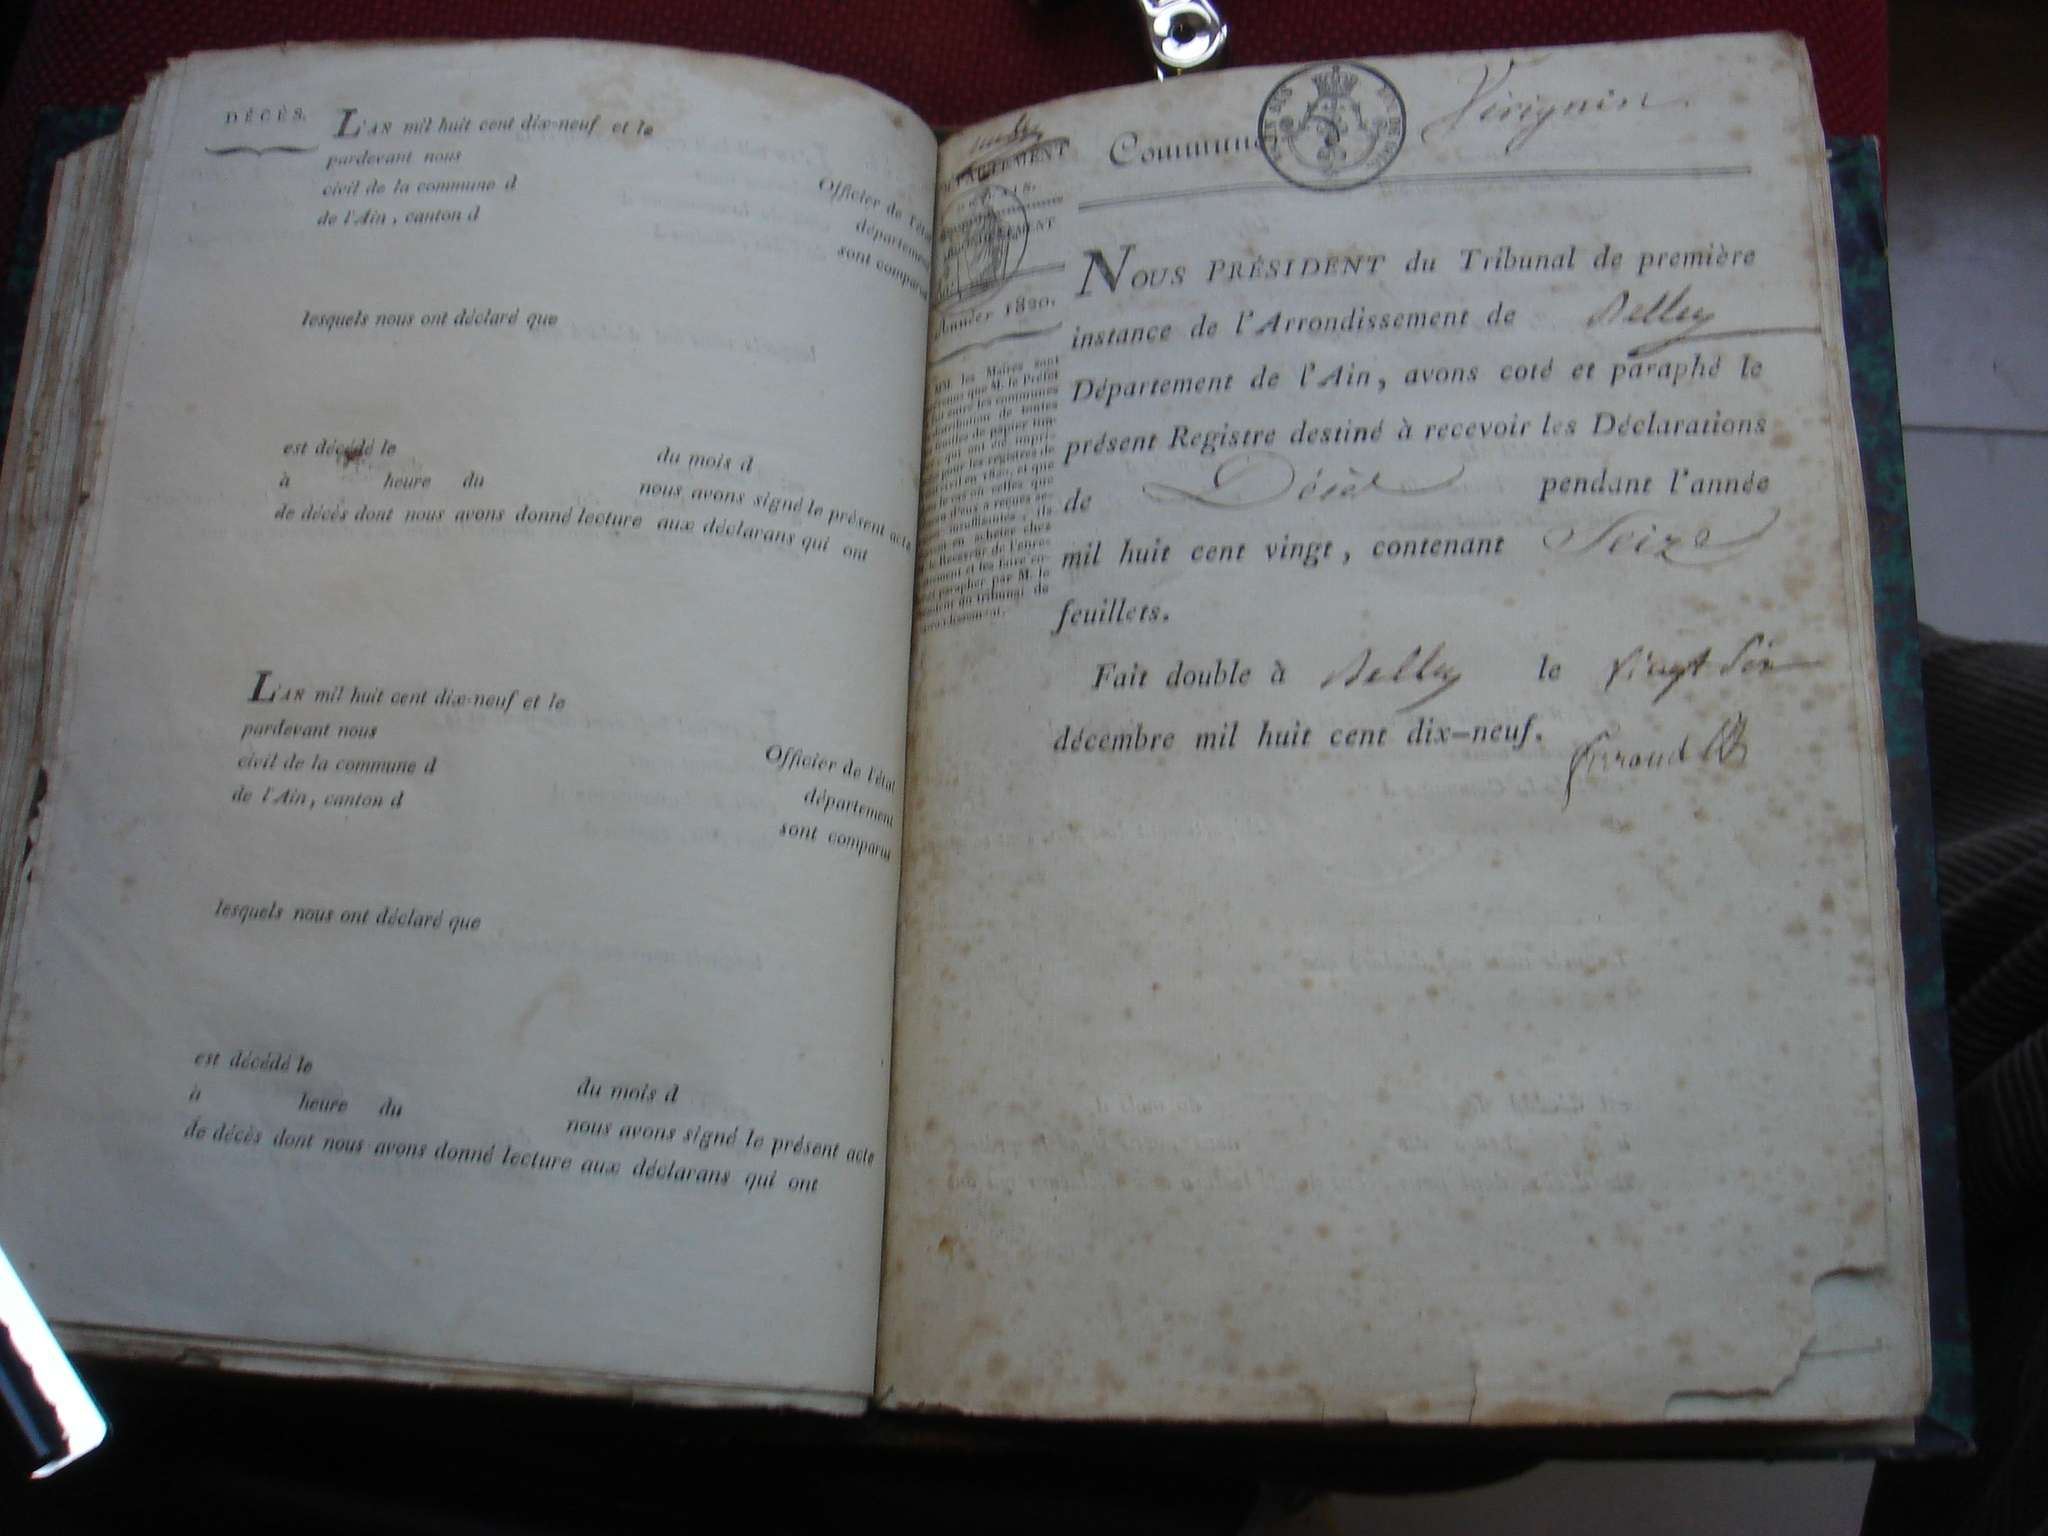 DÉCÈS.
L'AN mil huit cent dix-neuf et le
pardevant nous
Officier de l'état
civil de la commune d
département
de l'Ain, canton d
sont comparus
lesquels nous ont déclaré que
est décédé le
du mois d
à heure du
nous avons signé le présent acte
de décès dont nous avons donné lecture aux déclarans qui ont
L'AN mil huit cent dix-neuf et le
pardevant nous
Officier de l'état
civil de la commune d
département
de l'Ain, canton d
sont comparus
lesquels nous ont déclaré que
est décédé le
du mois d
à heure du
nous avons signé le présent acte
de décès dont nous avons donné lecture aux déclarans qui ont
DÉPARTEMENT
Année 1820.
MM. les Maires sont
que M. le Préfet
entre les communes
distribution de toutes
feuilles de papier tim-
qui ont été impri-
pour les registres de
civil en 1820, et que
le cas où celles que
d'eux a reçues se-
insuffisantes, ils
en acheter chez
le Receveur de l'enre-
et les faire co-
parapher par M. le
du tribunal de
Commune Virignin.
NOUS PRÉSIDENT du Tribunal de première
instance de l'Arrondissement de Belley
Département de l'Ain, avons coté et paraphé le
présent Registre destiné à recevoir les Déclarations
de Décès pendant l'année
mil huit cent vingt, contenant Seize
feuillets.
Fait double à Belley le vingt Six
décembre mil huit cent dix-neuf.